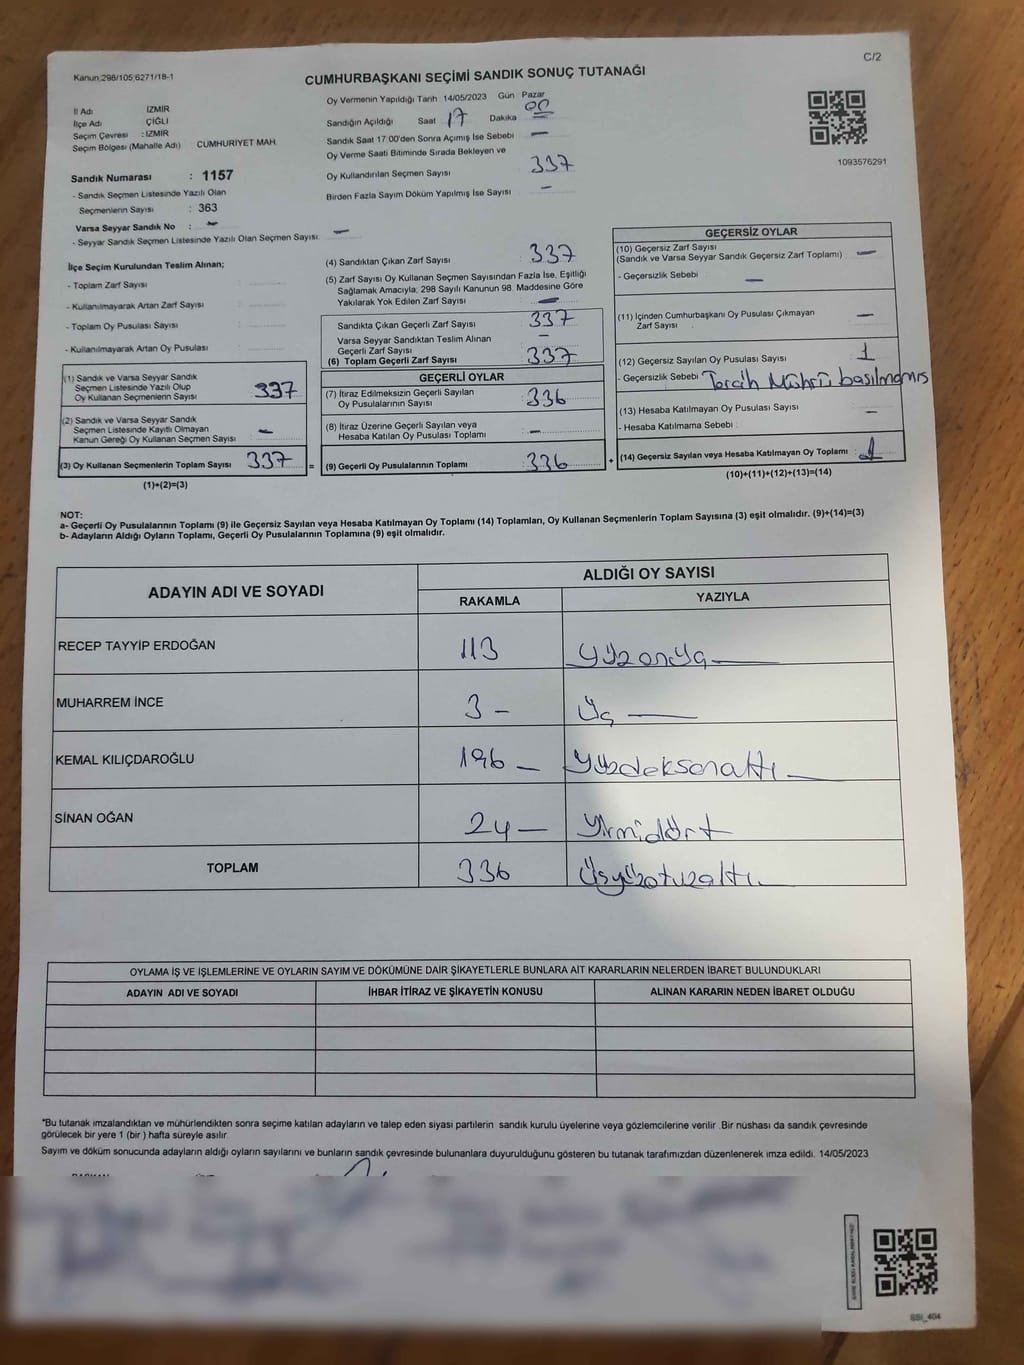 C/2
Kanun:298/105,6271/18-1
CUMHURBAŞKANI SEÇİMİ SANDIK SONUÇ TUTANAĞI
İl Adı İZMİR
İlçe Adı ÇİĞLİ
Seçim Çevresi : İZMİR
Seçim Bölgesi (Mahalle Adı) CUMHURİYET MAH.
Sandık Numarası : 1157
- Sandık Seçmen Listesinde Yazılı Olan
Seçmenlerin Sayısı : 363
Varsa Seyyar Sandık No : -
- Seyyar Sandık Seçmen Listesinde Yazılı Olan Seçmen Sayısı: -
Oy Vermenin Yapıldığı Tarih 14/05/2023 Gün Pazar
Sandığın Açıldığı Saat 17 Dakika 00
Sandık Saat 17:00'den Sonra Açımış İse Sebebi -
Oy Verme Saati Bitiminde Sırada Bekleyen ve
Oy Kullandırılan Seçmen Sayısı 337
Birden Fazla Sayım Döküm Yapılmış İse Sayısı -
1093576291
İlçe Seçim Kurulundan Teslim Alınan;
- Toplam Zarf Sayısı :
- Kullanılmayarak Artan Zarf Sayısı :
- Toplam Oy Pusulası Sayısı :
- Kullanılmayarak Artan Oy Pusulası :
(1) Sandık ve Varsa Seyyar Sandık
Seçmen Listesinde Yazılı Olup
Oy Kullanan Seçmenlerin Sayısı : 337
(2) Sandık ve Varsa Seyyar Sandık
Seçmen Listesinde Kayıtlı Olmayan
Kanun Gereği Oy Kullanan Seçmen Sayısı : -
(3) Oy Kullanan Seçmenlerin Toplam Sayısı 337
(1)+(2)=(3)
(4) Sandıktan Çıkan Zarf Sayısı : 337
(5) Zarf Sayısı Oy Kullanan Seçmen Sayısından Fazla İse, Eşitliği
Sağlamak Amacıyla; 298 Sayılı Kanunun 98. Maddesine Göre
Yakılarak Yok Edilen Zarf Sayısı : -
Sandıkta Çıkan Geçerli Zarf Sayısı : 337
Varsa Seyyar Sandıktan Teslim Alınan
Geçerli Zarf Sayısı : -
(6) Toplam Geçerli Zarf Sayısı : 337
GEÇERLİ OYLAR
(7) İtiraz Edilmeksizin Geçerli Sayılan
Oy Pusulalarının Sayısı : 336
(8) İtiraz Üzerine Geçerli Sayılan veya
Hesaba Katılan Oy Pusulası Toplamı : -
= (9) Geçerli Oy Pusulalarının Toplamı : 336
GEÇERSİZ OYLAR
(10) Geçersiz Zarf Sayısı
(Sandık ve Varsa Seyyar Sandık Geçersiz Zarf Toplamı) : -
- Geçersizlik Sebebi : -
(11) İçinden Cumhurbaşkanı Oy Pusulası Çıkmayan
Zarf Sayısı : -
(12) Geçersiz Sayılan Oy Pusulası Sayısı : 1
- Geçersizlik Sebebi : Tercih Mührü basılmamış
(13) Hesaba Katılmayan Oy Pusulası Sayısı : -
- Hesaba Katılmama Sebebi :
+ (14) Geçersiz Sayılan veya Hesaba Katılmayan Oy Toplamı : 1
(10)+(11)+(12)+(13)=(14)
NOT:
a- Geçerli Oy Pusulalarının Toplamı (9) ile Geçersiz Sayılan veya Hesaba Katılmayan Oy Toplamı (14) Toplamları, Oy Kullanan Seçmenlerin Toplam Sayısına (3) eşit olmalıdır. (9)+(14)=(3)
b- Adayların Aldığı Oyların Toplamı, Geçerli Oy Pusulalarının Toplamına (9) eşit olmalıdır.
ADAYIN ADI VE SOYADI ALDIĞI OY SAYISI
RAKAMLA YAZIYLA
RECEP TAYYİP ERDOĞAN 113 Yüzonüç
MUHARREM İNCE 3 - Üç
KEMAL KILIÇDAROĞLU 196 - Yüzdoksanaltı
SİNAN OĞAN 24 - Yirmidört
TOPLAM 336 Üçyüzotuzaltı
OYLAMA İŞ VE İŞLEMLERİNE VE OYLARIN SAYIM VE DÖKÜMÜNE DAİR ŞİKAYETLERLE BUNLARA AİT KARARLARIN NELERDEN İBARET BULUNDUKLARI
ADAYIN ADI VE SOYADI İHBAR İTİRAZ VE ŞİKAYETİN KONUSU ALINAN KARARIN NEDEN İBARET OLDUĞU
*Bu tutanak imzalandıktan ve mühürlendikten sonra seçime katılan adayların ve talep eden siyasi partilerin sandık kurulu üyelerine veya gözlemcilerine verilir .Bir nüshası da sandık çevresinde
görülecek bir yere 1 (bir ) hafta süreyle asılır.
Sayım ve döküm sonucunda adayların aldığı oyların sayılarını ve bunların sandık çevresinde bulunanlara duyurulduğunu gösteren bu tutanak tarafımızdan düzenlenerek imza edildi. 14/05/2023
SSI_404